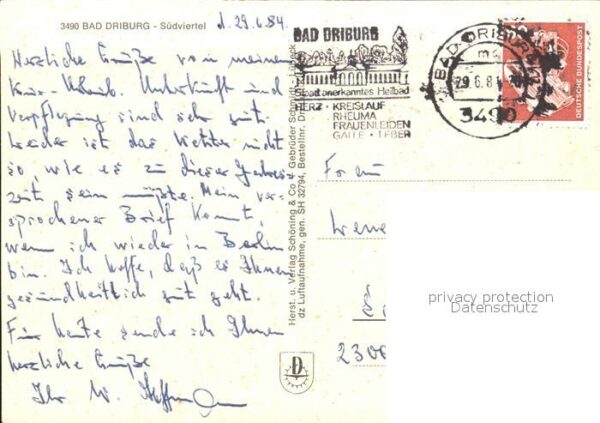 3490 BAD DRIBURG - Südviertel
d. 29.6.84.
Herzliche Grüße von meinem
Kur-Urlaub. Unterkunft und
Verpflegung sind sehr gut.
Leider ist das Wetter nicht
so, wie es zu dieser Jahres-
zeit sein müßte. Mein ver-
sprochener Brief kommt,
wenn ich wieder in Berlin
bin. Ich hoffe, daß es Ihnen
gesundheitlich gut geht.
Für heute sende ich Ihnen
herzliche Grüße
Ihr W.
Herst. u. Verlag Schöning & Co + Gebrüder Schmidt
dz Luftaufnahme, gen. SH 32794, Bestellnr.
BAD DRIBURG
Staatl. anerkanntes Heilbad
HERZ · KREISLAUF
RHEUMA
FRAUENLEIDEN
GALLE · LEBER
BAD DRIBURG
29.6.84
3490
DEUTSCHE BUNDESPOST
Frau
2300
D
privacy protection
Datenschutz